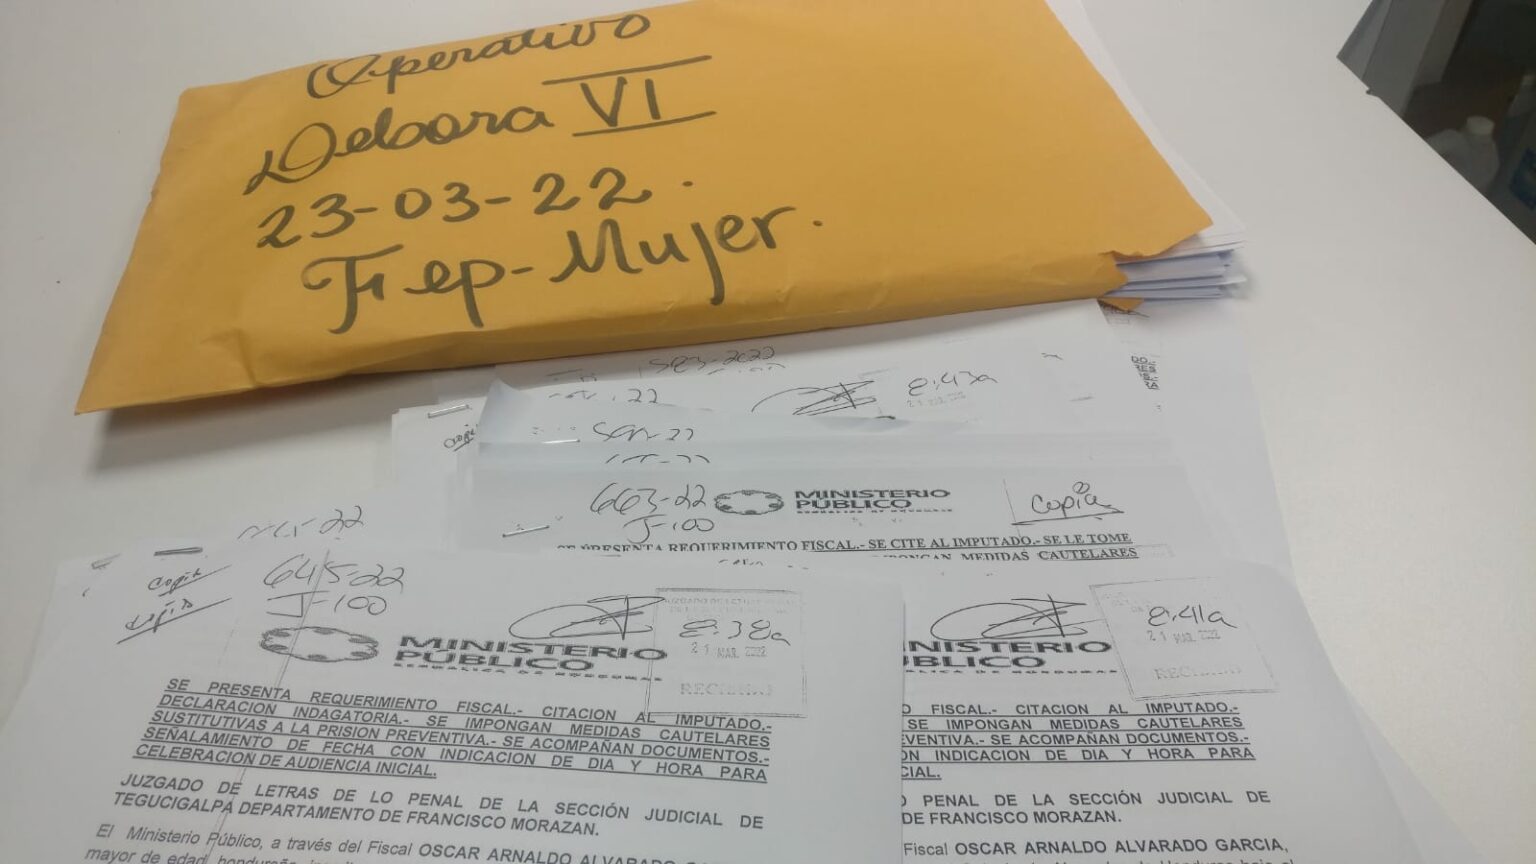 Operativo
Debora VI
23-03-22.
Fep-Mujer.
1583-2022
8:43a
copia
663-22
J-100
MINISTERIO
PÚBLICO
REPUBLICA DE HONDURAS
Copia
SE PRESENTA REQUERIMIENTO FISCAL.- SE CITE AL IMPUTADO.- SE LE TOME
IMPONGAN MEDIDAS CAUTELARES
copia
copia
645-22
J-100
MINISTERIO
PÚBLICO
REPUBLICA DE HONDURAS
8:38a
21 MAR. 2022
RECIBIDO
SE PRESENTA REQUERIMIENTO FISCAL.- CITACION AL IMPUTADO.-
DECLARACION INDAGATORIA.- SE IMPONGAN MEDIDAS CAUTELARES
SUSTITUTIVAS A LA PRISION PREVENTIVA.- SE ACOMPAÑAN DOCUMENTOS.-
SEÑALAMIENTO DE FECHA CON INDICACION DE DIA Y HORA PARA
CELEBRACION DE AUDIENCIA INICIAL.
JUZGADO DE LETRAS DE LO PENAL DE LA SECCIÓN JUDICIAL DE
TEGUCIGALPA DEPARTAMENTO DE FRANCISCO MORAZAN.
El Ministerio Público, a través del Fiscal OSCAR ARNALDO ALVARADO
mayor de edad, hondureño,
8:41a
21 MAR. 2022
NISTERIO
BLICO
FISCAL.- CITACION AL IMPUTADO.-
SE IMPONGAN MEDIDAS CAUTELARES
EVENTIVA.- SE ACOMPAÑAN DOCUMENTOS.-
ON INDICACION DE DIA Y HORA PARA
CIAL.
PENAL DE LA SECCIÓN JUDICIAL DE
DE FRANCISCO MORAZAN.
Fiscal OSCAR ARNALDO ALVARADO GARCIA,